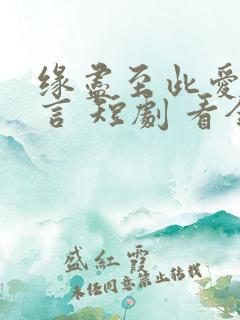 缘盡至此愛
言 短劇 看全
盛紅霞
未经同意禁止转载